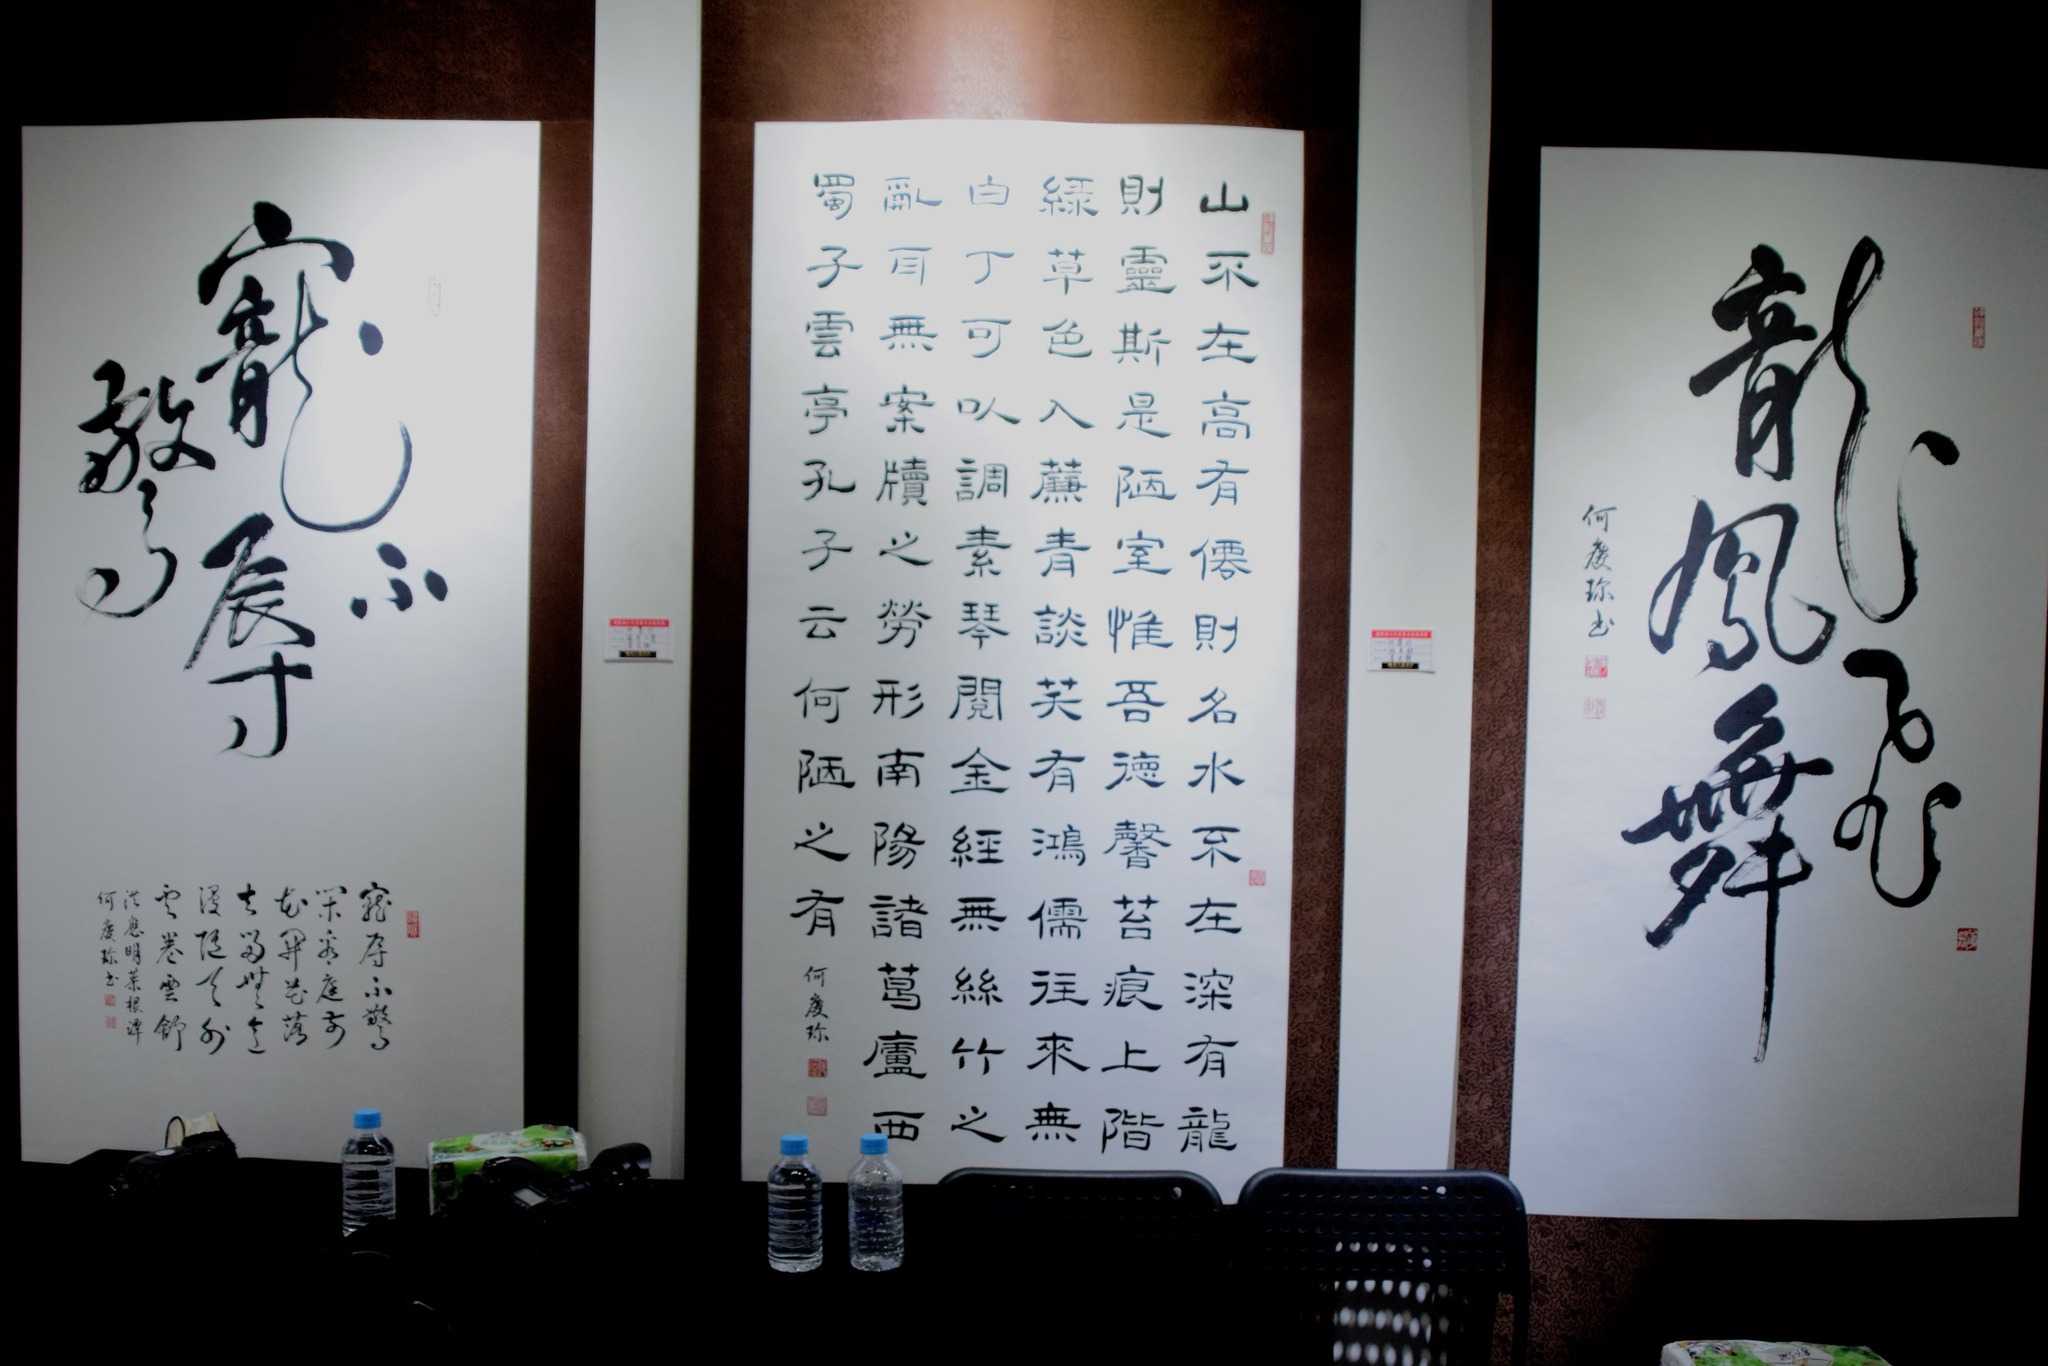 龍飛
鳳舞
何慶珎書
山不在高有僊則名水不在深有龍
則靈斯是陋室惟吾德馨苔痕上階
綠草色入簾青談笑有鴻儒往來無
白丁可以調素琴閱金經無絲竹之
亂耳無案牘之勞形南陽諸葛廬西
蜀子雲亭孔子云何陋之有
何慶珎
寵辱
不驚
寵辱不驚
閑看庭前
花開花落
去留無意
漫隨天外
雲卷雲舒
洪應明菜根譚
何慶珎書